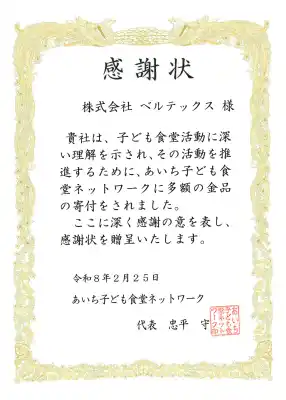 感謝状
株式会社 ベルテックス 様
貴社は、子ども食堂活動に深
い理解を示され、その活動を推
進するために、あいち子ども食
堂ネットワークに多額の金品
の寄付をされました。
ここに深く感謝の意を表し、
感謝状を贈呈いたします。
令和8年2月25日
あいち子ども食堂ネットワーク
代表 忠平 守